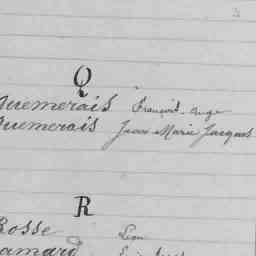 Q
Quemerais François-Ange
Quemerais Jean Marie Jacques
R
Rosse Léon